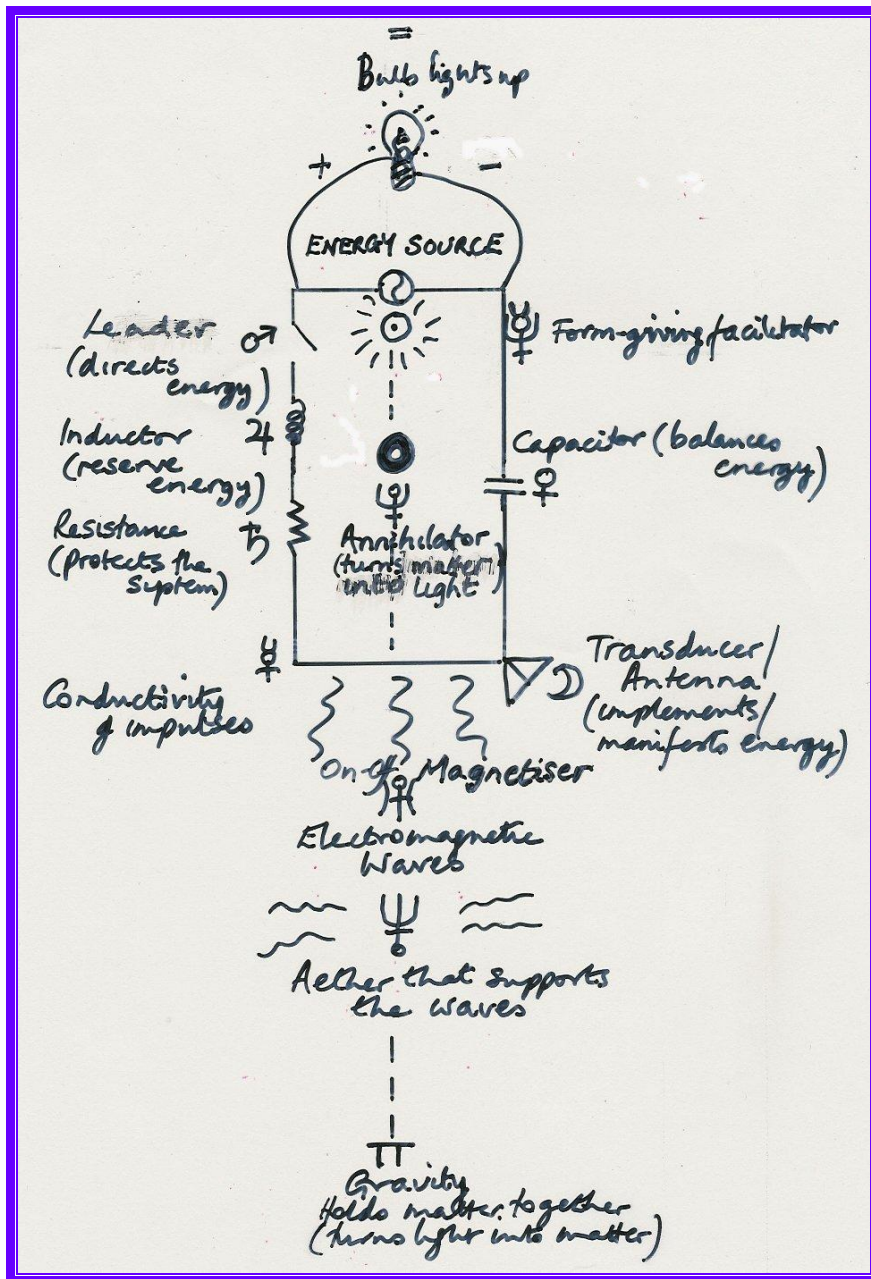 =
Bulb lights up
+
-
ENERGY SOURCE
Leader
(directs
energy)
Form-giving facilitator
Inductor
(reserve
energy)
Capacitor (balances
energy)
Resistance
(protects the
system)
Annihilator
(turns matter
into light)
Conductivity
of impulses
Transducer/
Antenna
(implements/
manifests energy)
On-Off Magnetiser
Electromagnetic
Waves
Aether that supports
the waves
Gravity
Holds matter together
(turns light into matter)